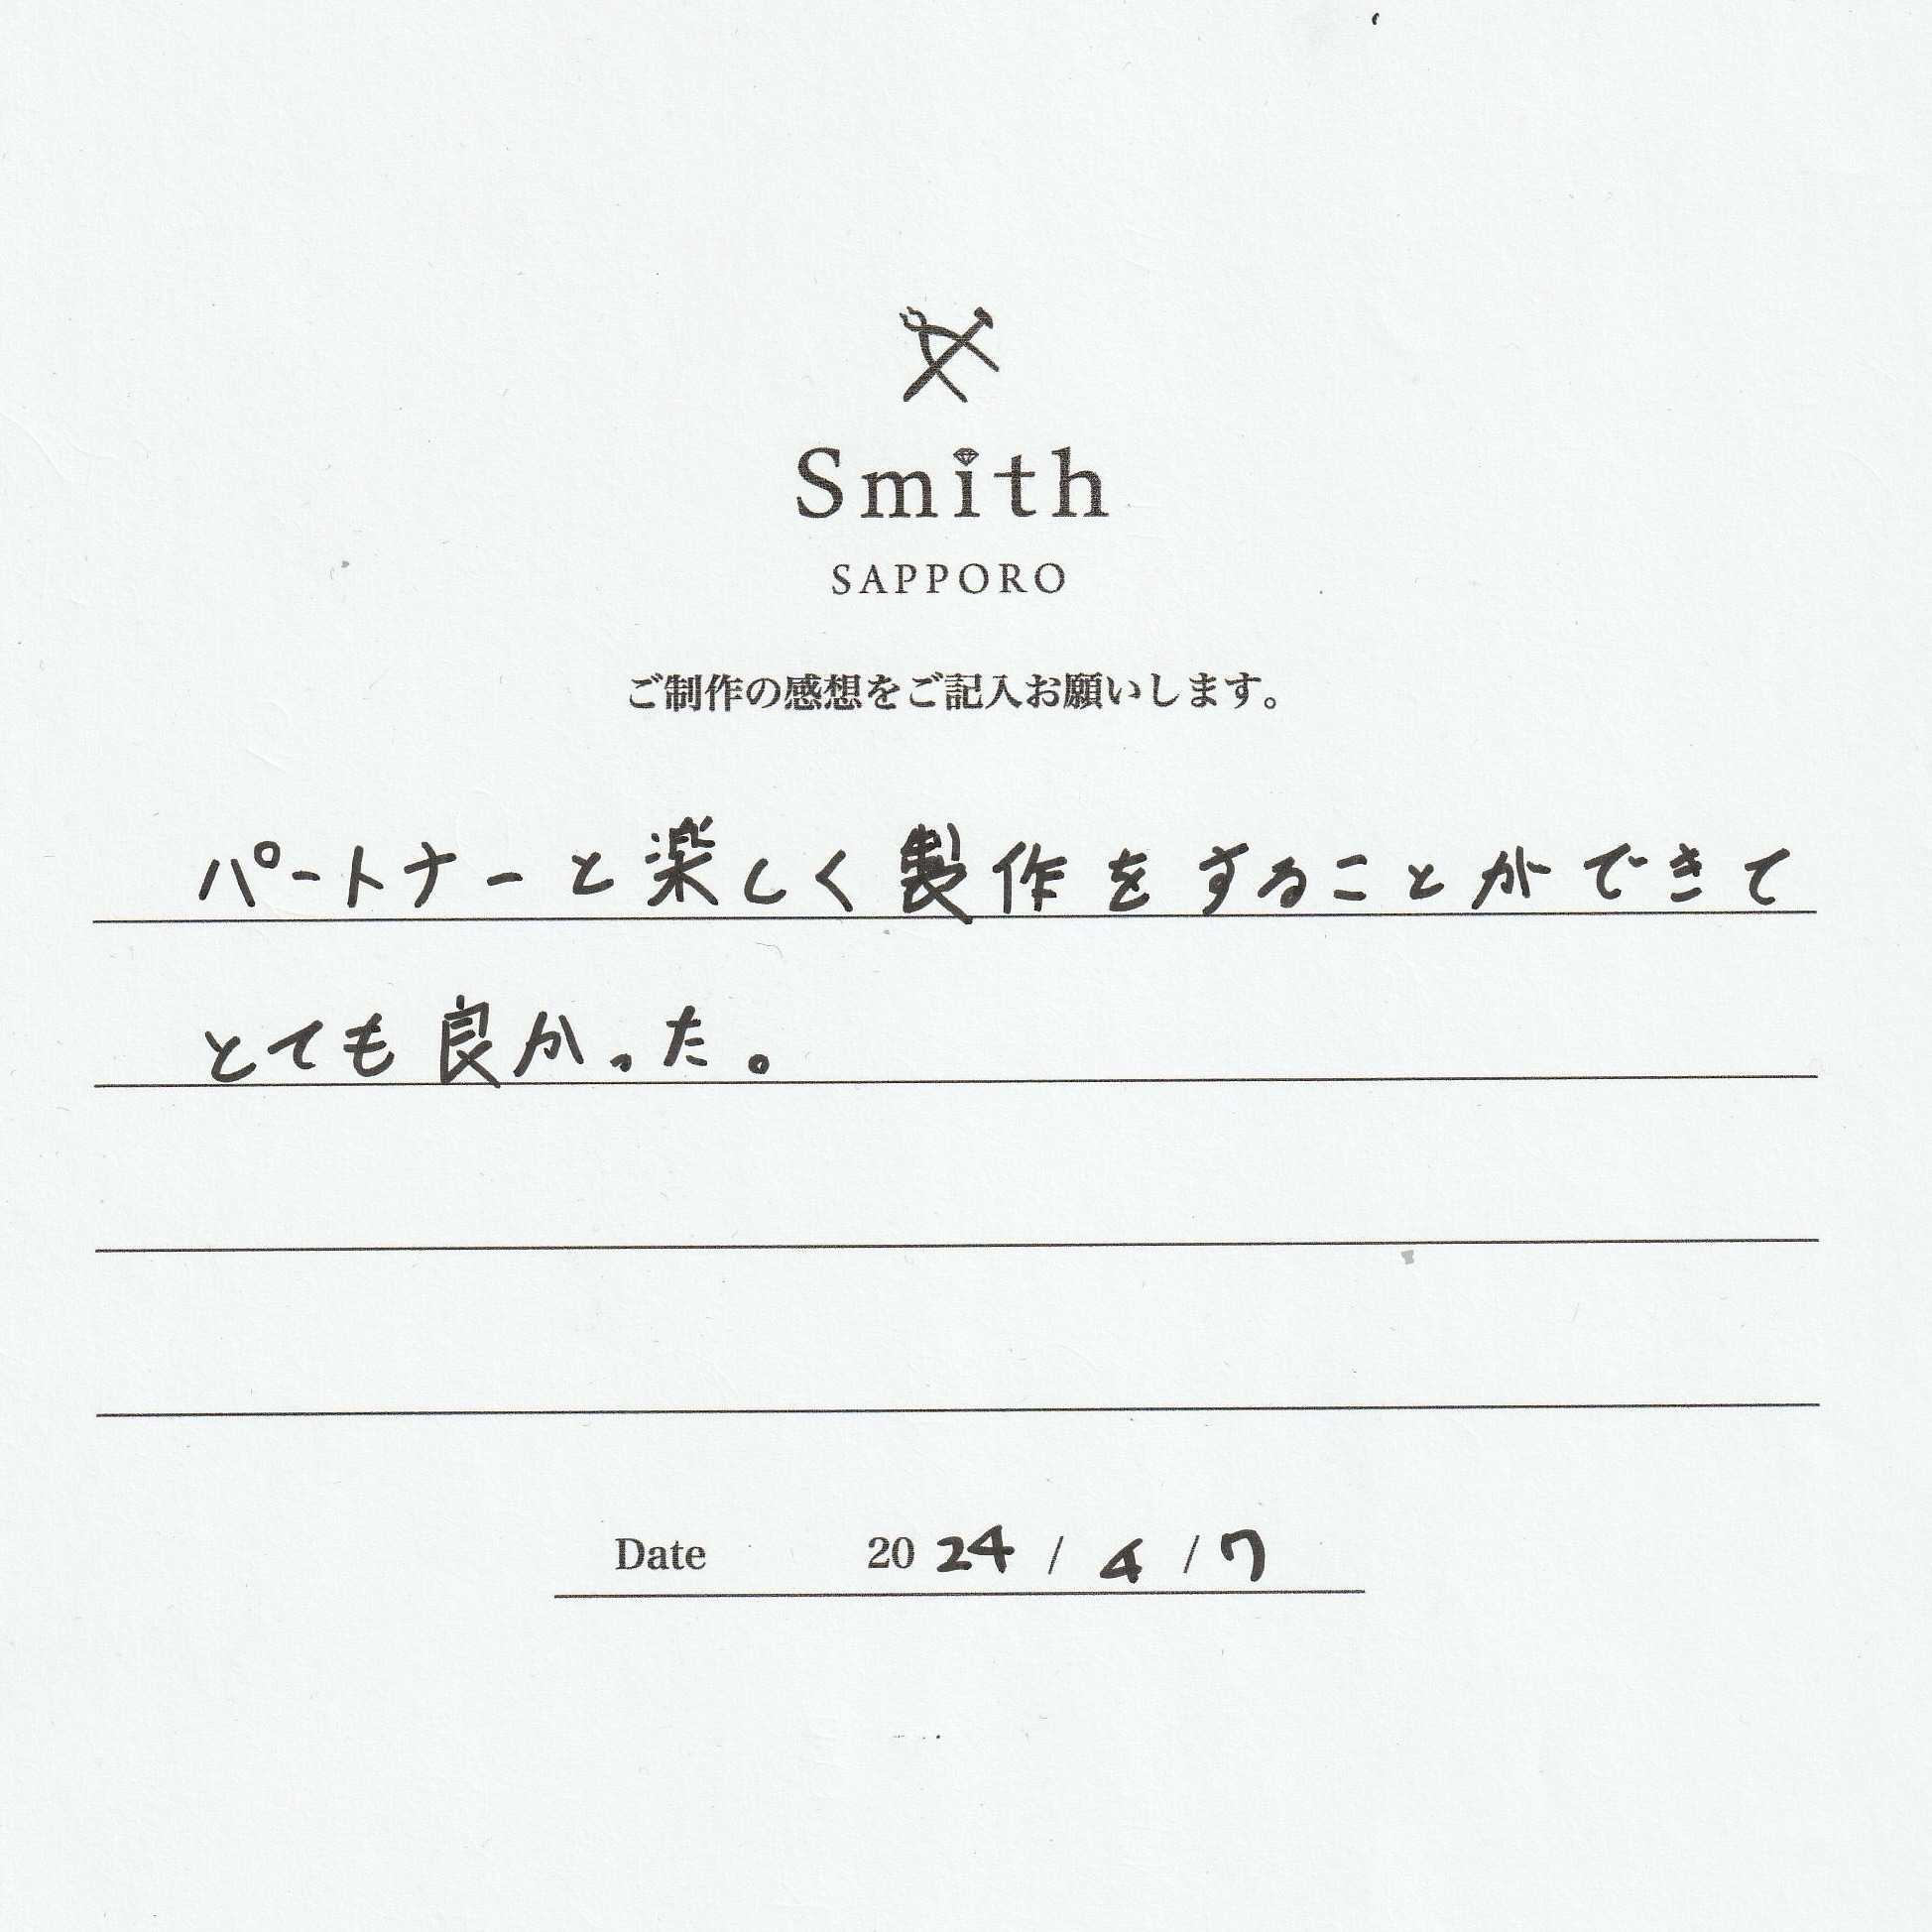 Smith
SAPPORO
ご制作の感想をご記入お願いします。
パートナーと楽しく製作をすることができて
とても良かった。
Date 2024 / 4 / 7